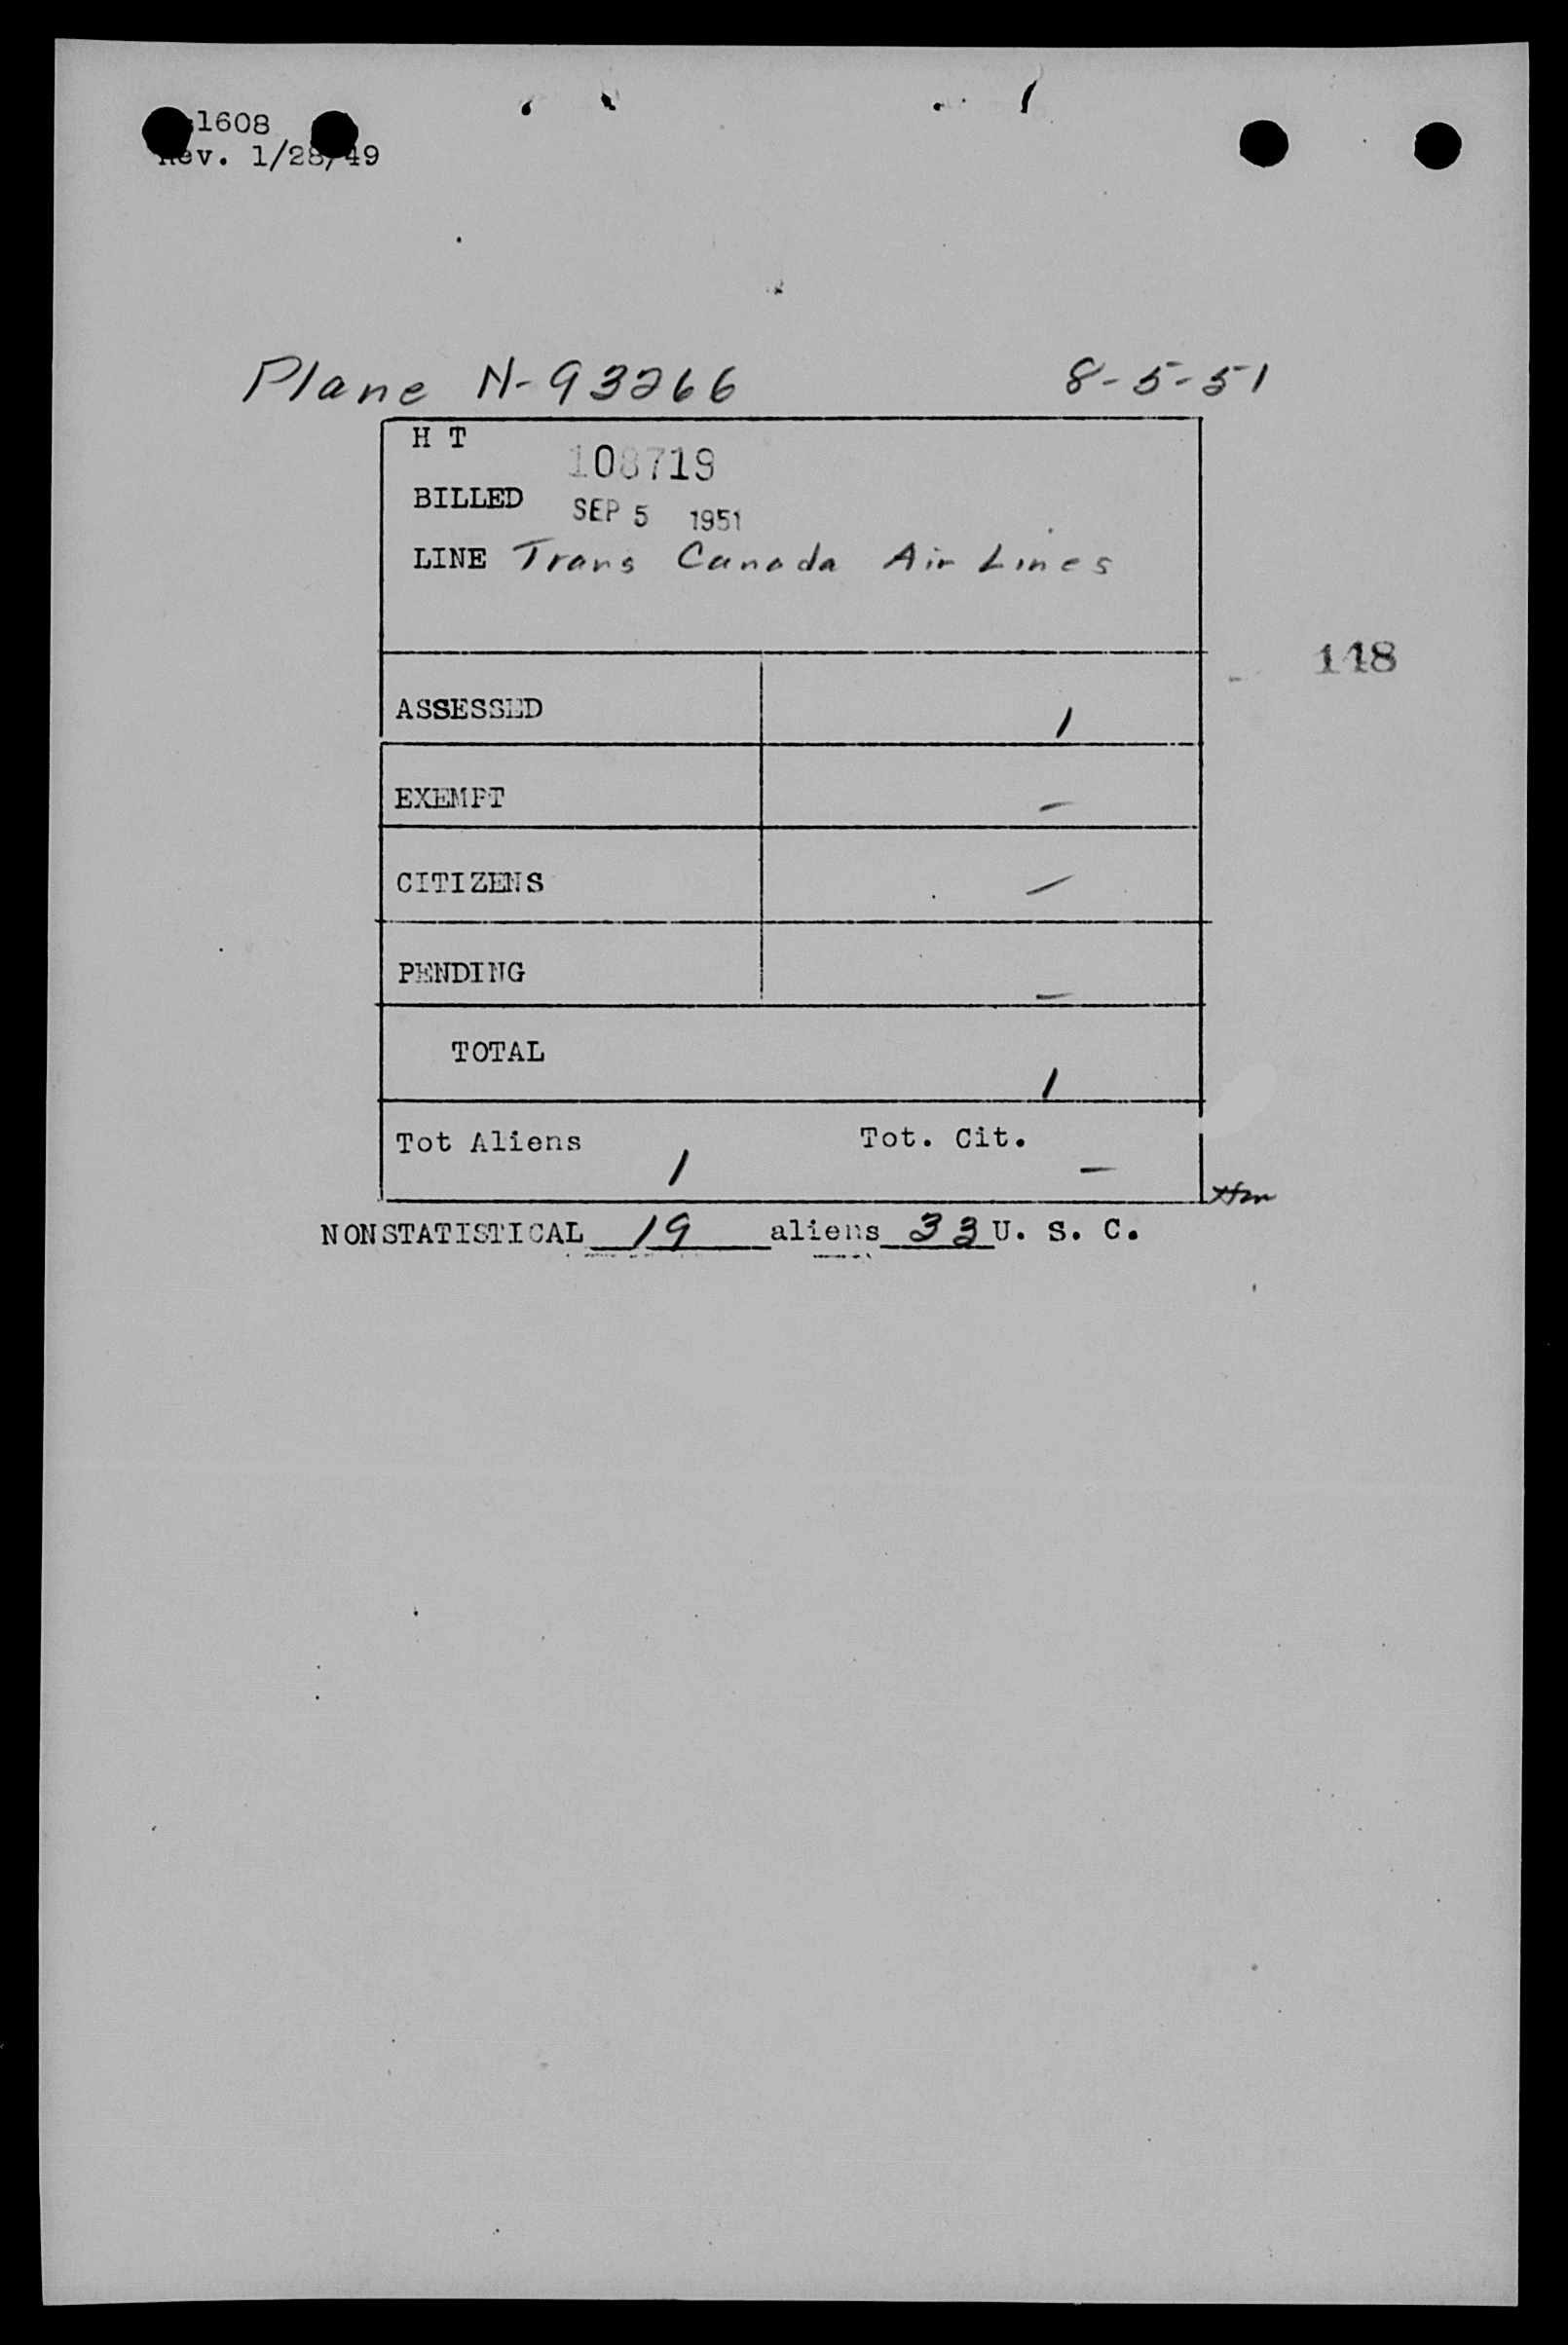 1608
Rev. 1/28/49
Plane N-93266 8-5-51
H T
108719
BILLED SEP 5 1951
LINE Trans Canada Air Lines
148
ASSESSED 1
EXEMPT –
CITIZENS –
PENDING –
TOTAL 1
Tot Aliens 1 Tot. Cit. –
NONSTATISTICAL 19 aliens 33 U. S. C.